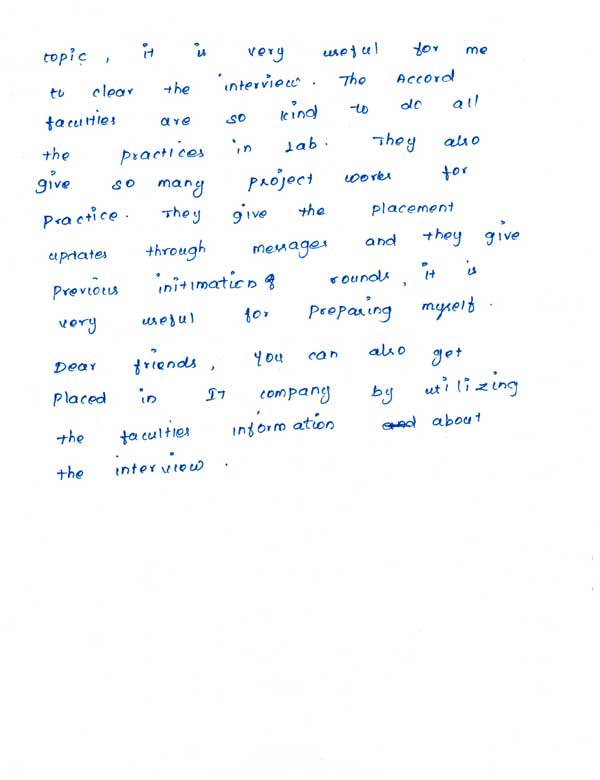 topic, it is very useful for me
to clear the interview. The Accord
faculties are so kind to do all
the practices in Lab. They also
give so many project works for
practice. They give the placement
updates through messages and they give
previous initimation of rounds, it is
very useful for preparing myself.
Dear friends, you can also get
placed in IT company by utilizing
the faculties information and about
the interview.